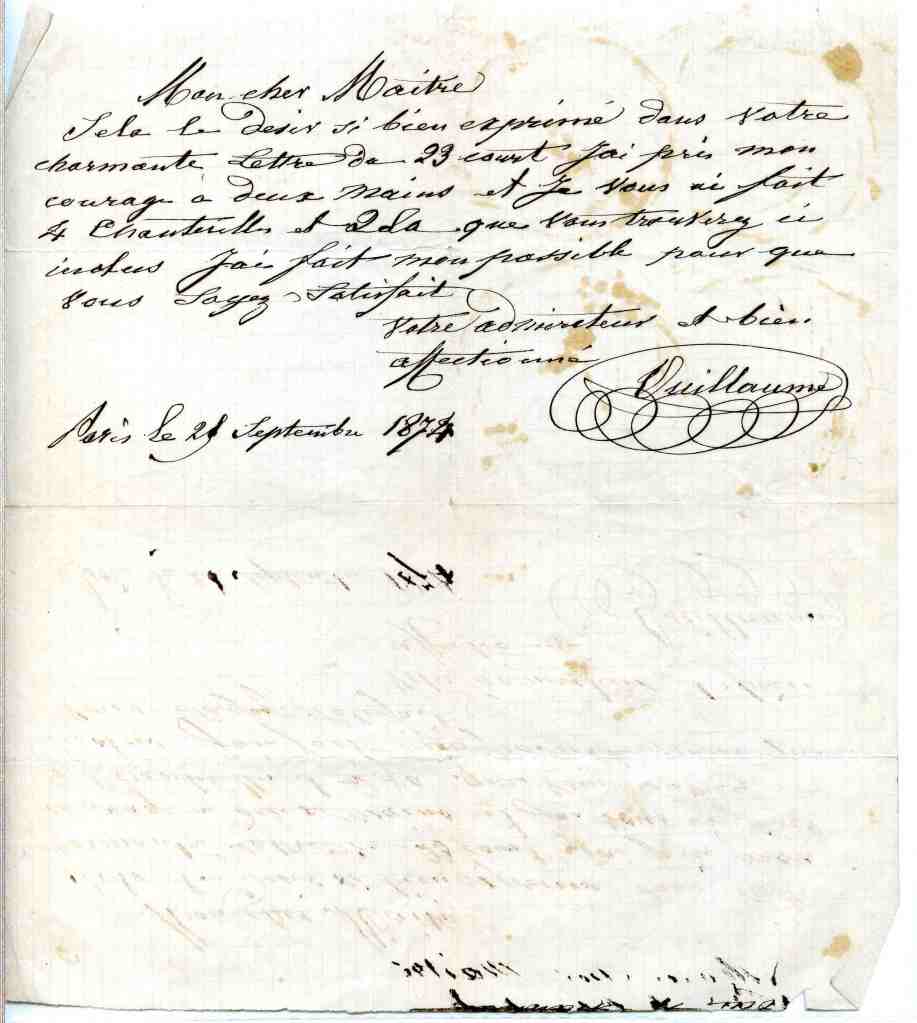 Mon cher Maitre
Selo le desir si bien exprimé dans Votre
charmante Lettre du 23 court J'ai pris mon
courage à deux mains et Je Vous ai fait
4 Chanterelles et 2 La que Vous trouverez ci
inclus J'ai fait mon possible pour que
Vous Soyez Satisfait
Votre admirateur et bien
affectionné
Vuillaume
Paris le 28 Septembre 1874